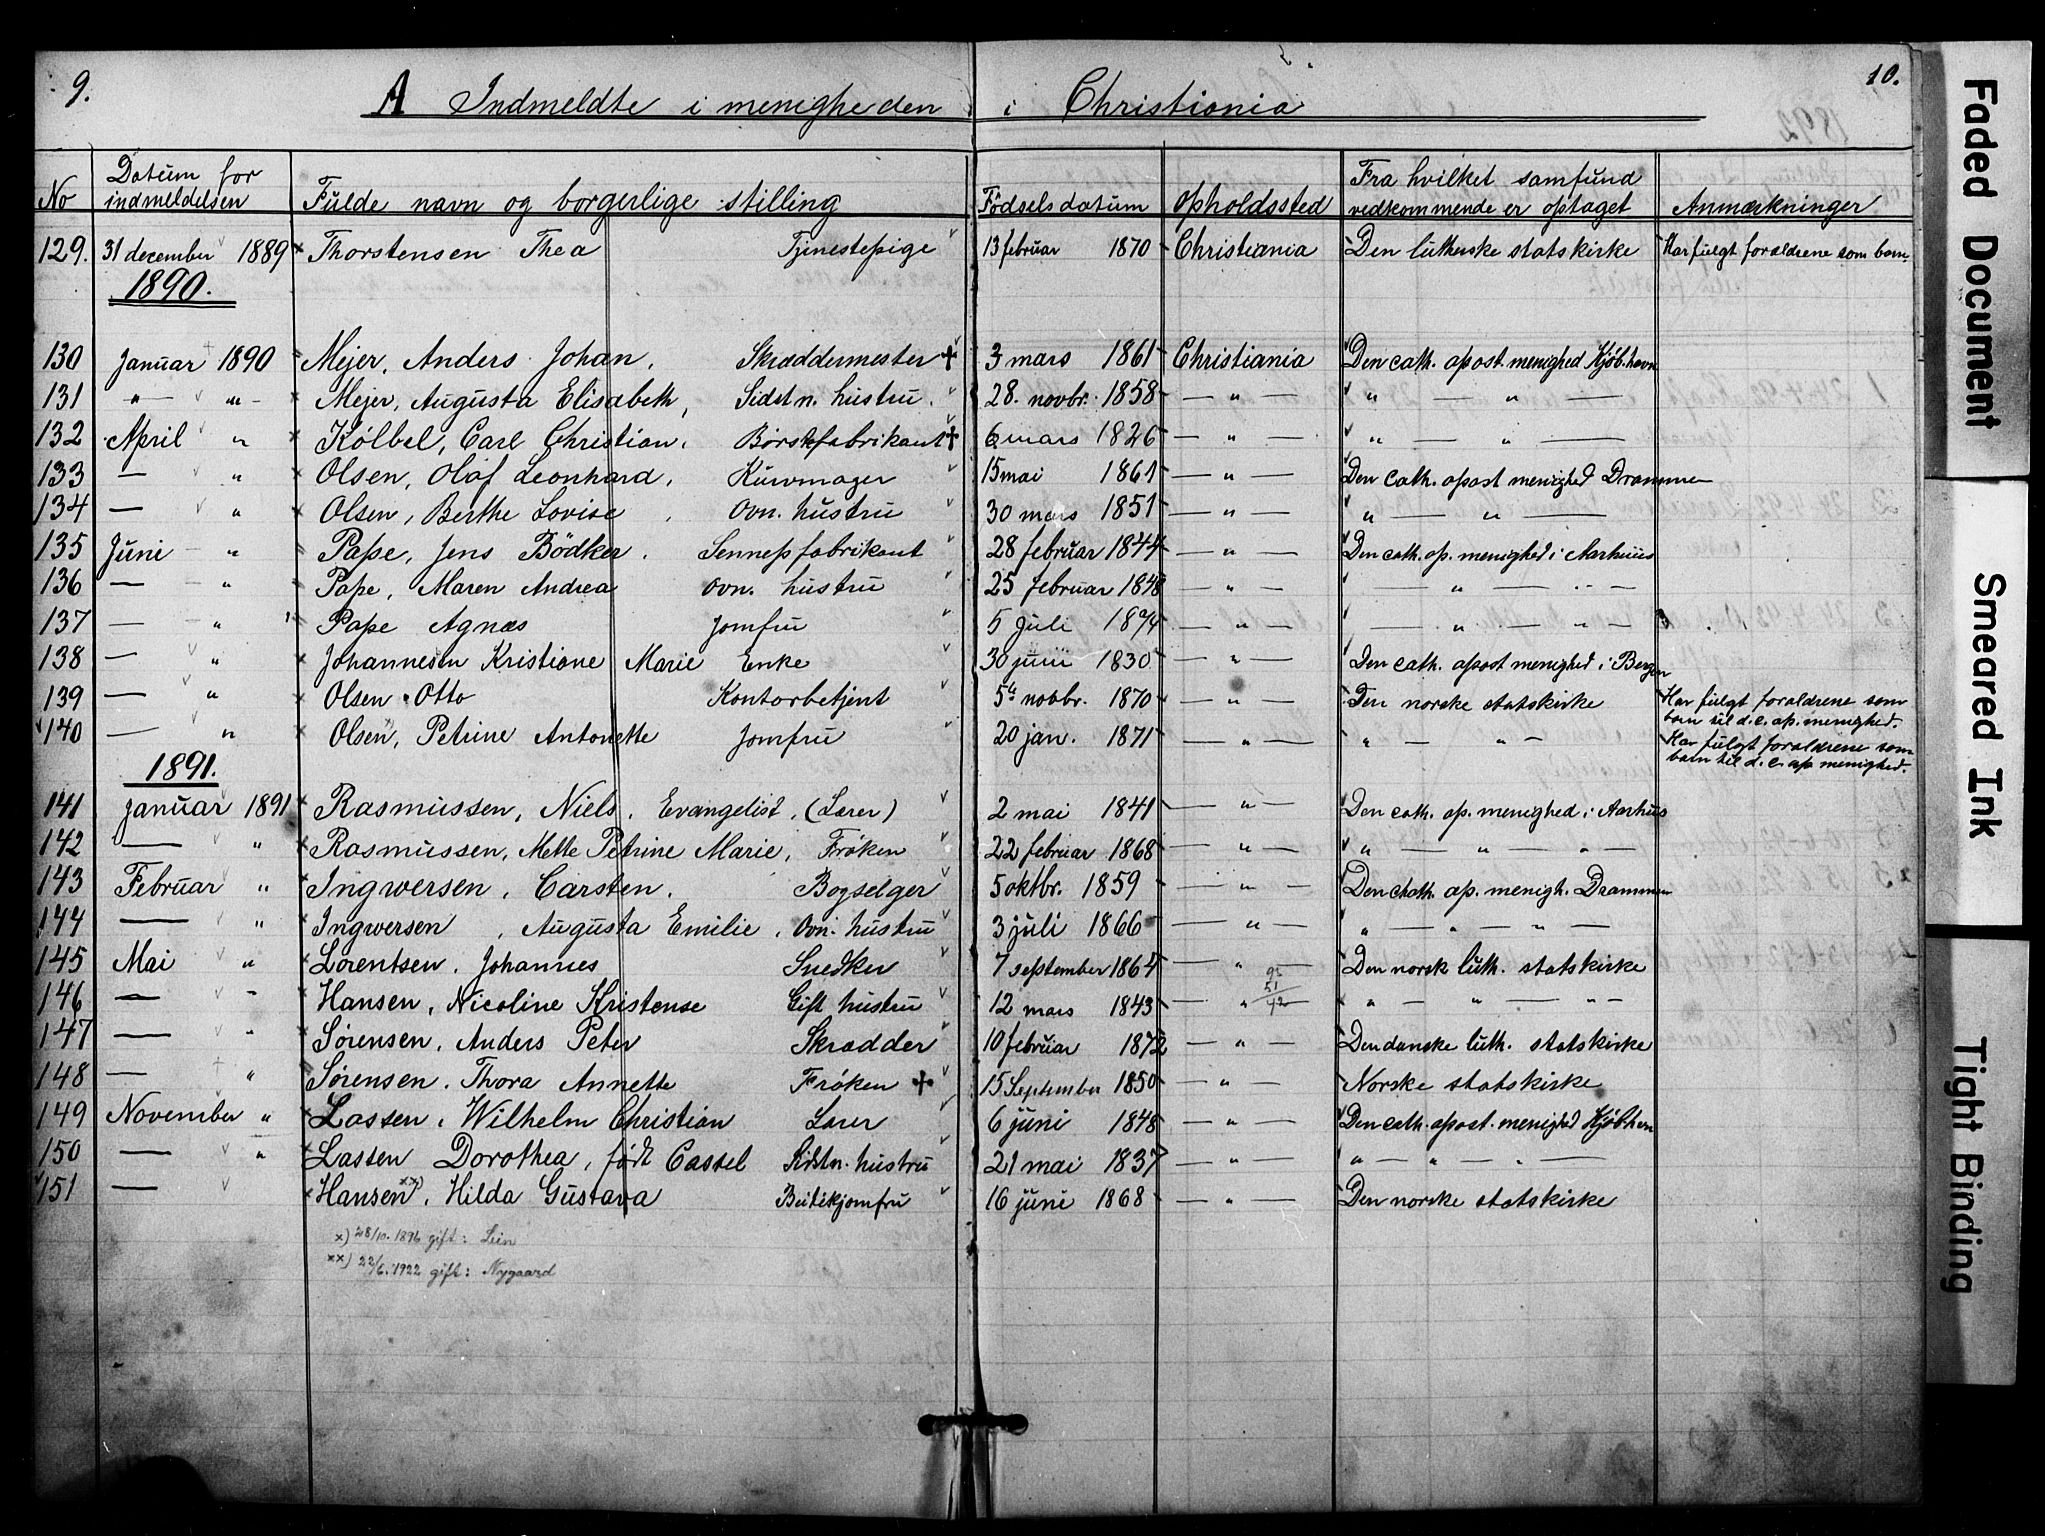 9. A Indmeldte i menigheden i Christiania 10.
No Datum for indmeldelsen Fulde navn og borgerlige stilling Fødselsdatum Opholdssted Fra hvilket samfund vedkommende er optaget Anmærkninger
129. 31 december 1889 Thorstensen Thea Tjenestepige 13 februar 1870 Christiania Den lutherske statskirke Har fulgt forældrene som barn.
1890.
130 Januar 1890 Mejer, Anders Johan, Skræddermester + 3 mars 1861 Christiania Den cath. apost. menighed Kjøb.havn
131 " — " — Mejer, Augusta Elisabeth, Sidstn. hustru. 28. novbr. 1858 — " — " — " —
132 April " Kölbel, Carl Christian, Børstefabrikant + 6 mars 1826 — " — " — " —
133 — " Olsen, Olaf Leonhard, Kurvmager 15 mai 1861 — " — Den cath. apost menighed Drammen
134 — " Olsen, Berthe Lovise, Ovn. hustru 30 mars 1851 — " — " — " —
135 Juni — " Pape, Jens Bödker. Sennepfabrikant 28 februar 1844 — " — Den cath. ap. menighed i Aarhuus
136 — " Pape, Maren Andrea ovn. hustru 25 februar 1848 — " — — " — " —
137 — " Pape Agnæs Jomfru 5 Juli — " — — " — " —
138 — " Johannesen Kristiane Marie Enke 30 juni 1830 — " — Den cath. apost menighed i Bergen
139 — " Olsen Otto Kontorbetjent 5te novbr. 1870 — " — Den norske statskirke Har fulgt forældrene som barn til d. c. ap. menighed.
140 — " Olsen, Petrine Antonette Jomfru 20 jan. 1871 — " — " — " — Har fulgt forældrene som barn til d. c. ap menighed.
1891.
141 januar 1891 Rasmussen, Niels, Evangelist, (Lærer) 2 mai 1841 — " — Den cath. ap. menighed i Aarhus
142 — " Rasmussen, Mette Petrine Marie, Frøken 22 februar 1868 — " — " — " — " —
143 Februar " Ingwersen, Carsten, Bogselger 5 oktbr. 1859 — " — Den cath. ap. menigh. Drammen
144 — " Ingwersen, Augusta Emilie, Ovn. hustru 3 juli 1866 — " — " — " — " —
145 Mai " Lorentsen, Johannes Snedker 7 september 1864 — " — Den norsk luth. statskirke
146 — " Hansen, Nicoline Kristense Gift hustru 12 mars 1843 — " — " — " — " —
91
51
42
147 — " Sørensen, Anders Peter Skrædder 10 februar 1872 — " — Den danske luth. statskirke
148 — " Sørensen, Thora Annette Frøken + 15 September 1850 — " — Norske statskirke
149 November " Lassen, Wilhelm Christian Lærer 6 juni 1848 — " — Den cath. apost. menighed Kjøbhvn
150 — " Lassen Dorothea, født Cassel Sidstn. hustru 21 mai 1837 — " — " — " — " —
151 — Hansen xx), Hilda Gustava Butikjomfru 16 juni 1868 — " — Den norske statskirke
x) 28/10. 1896 gift: Lein
xx) 22/6. 1922 gift: Nygaard
Faded Document
Smeared Ink
Tight Binding